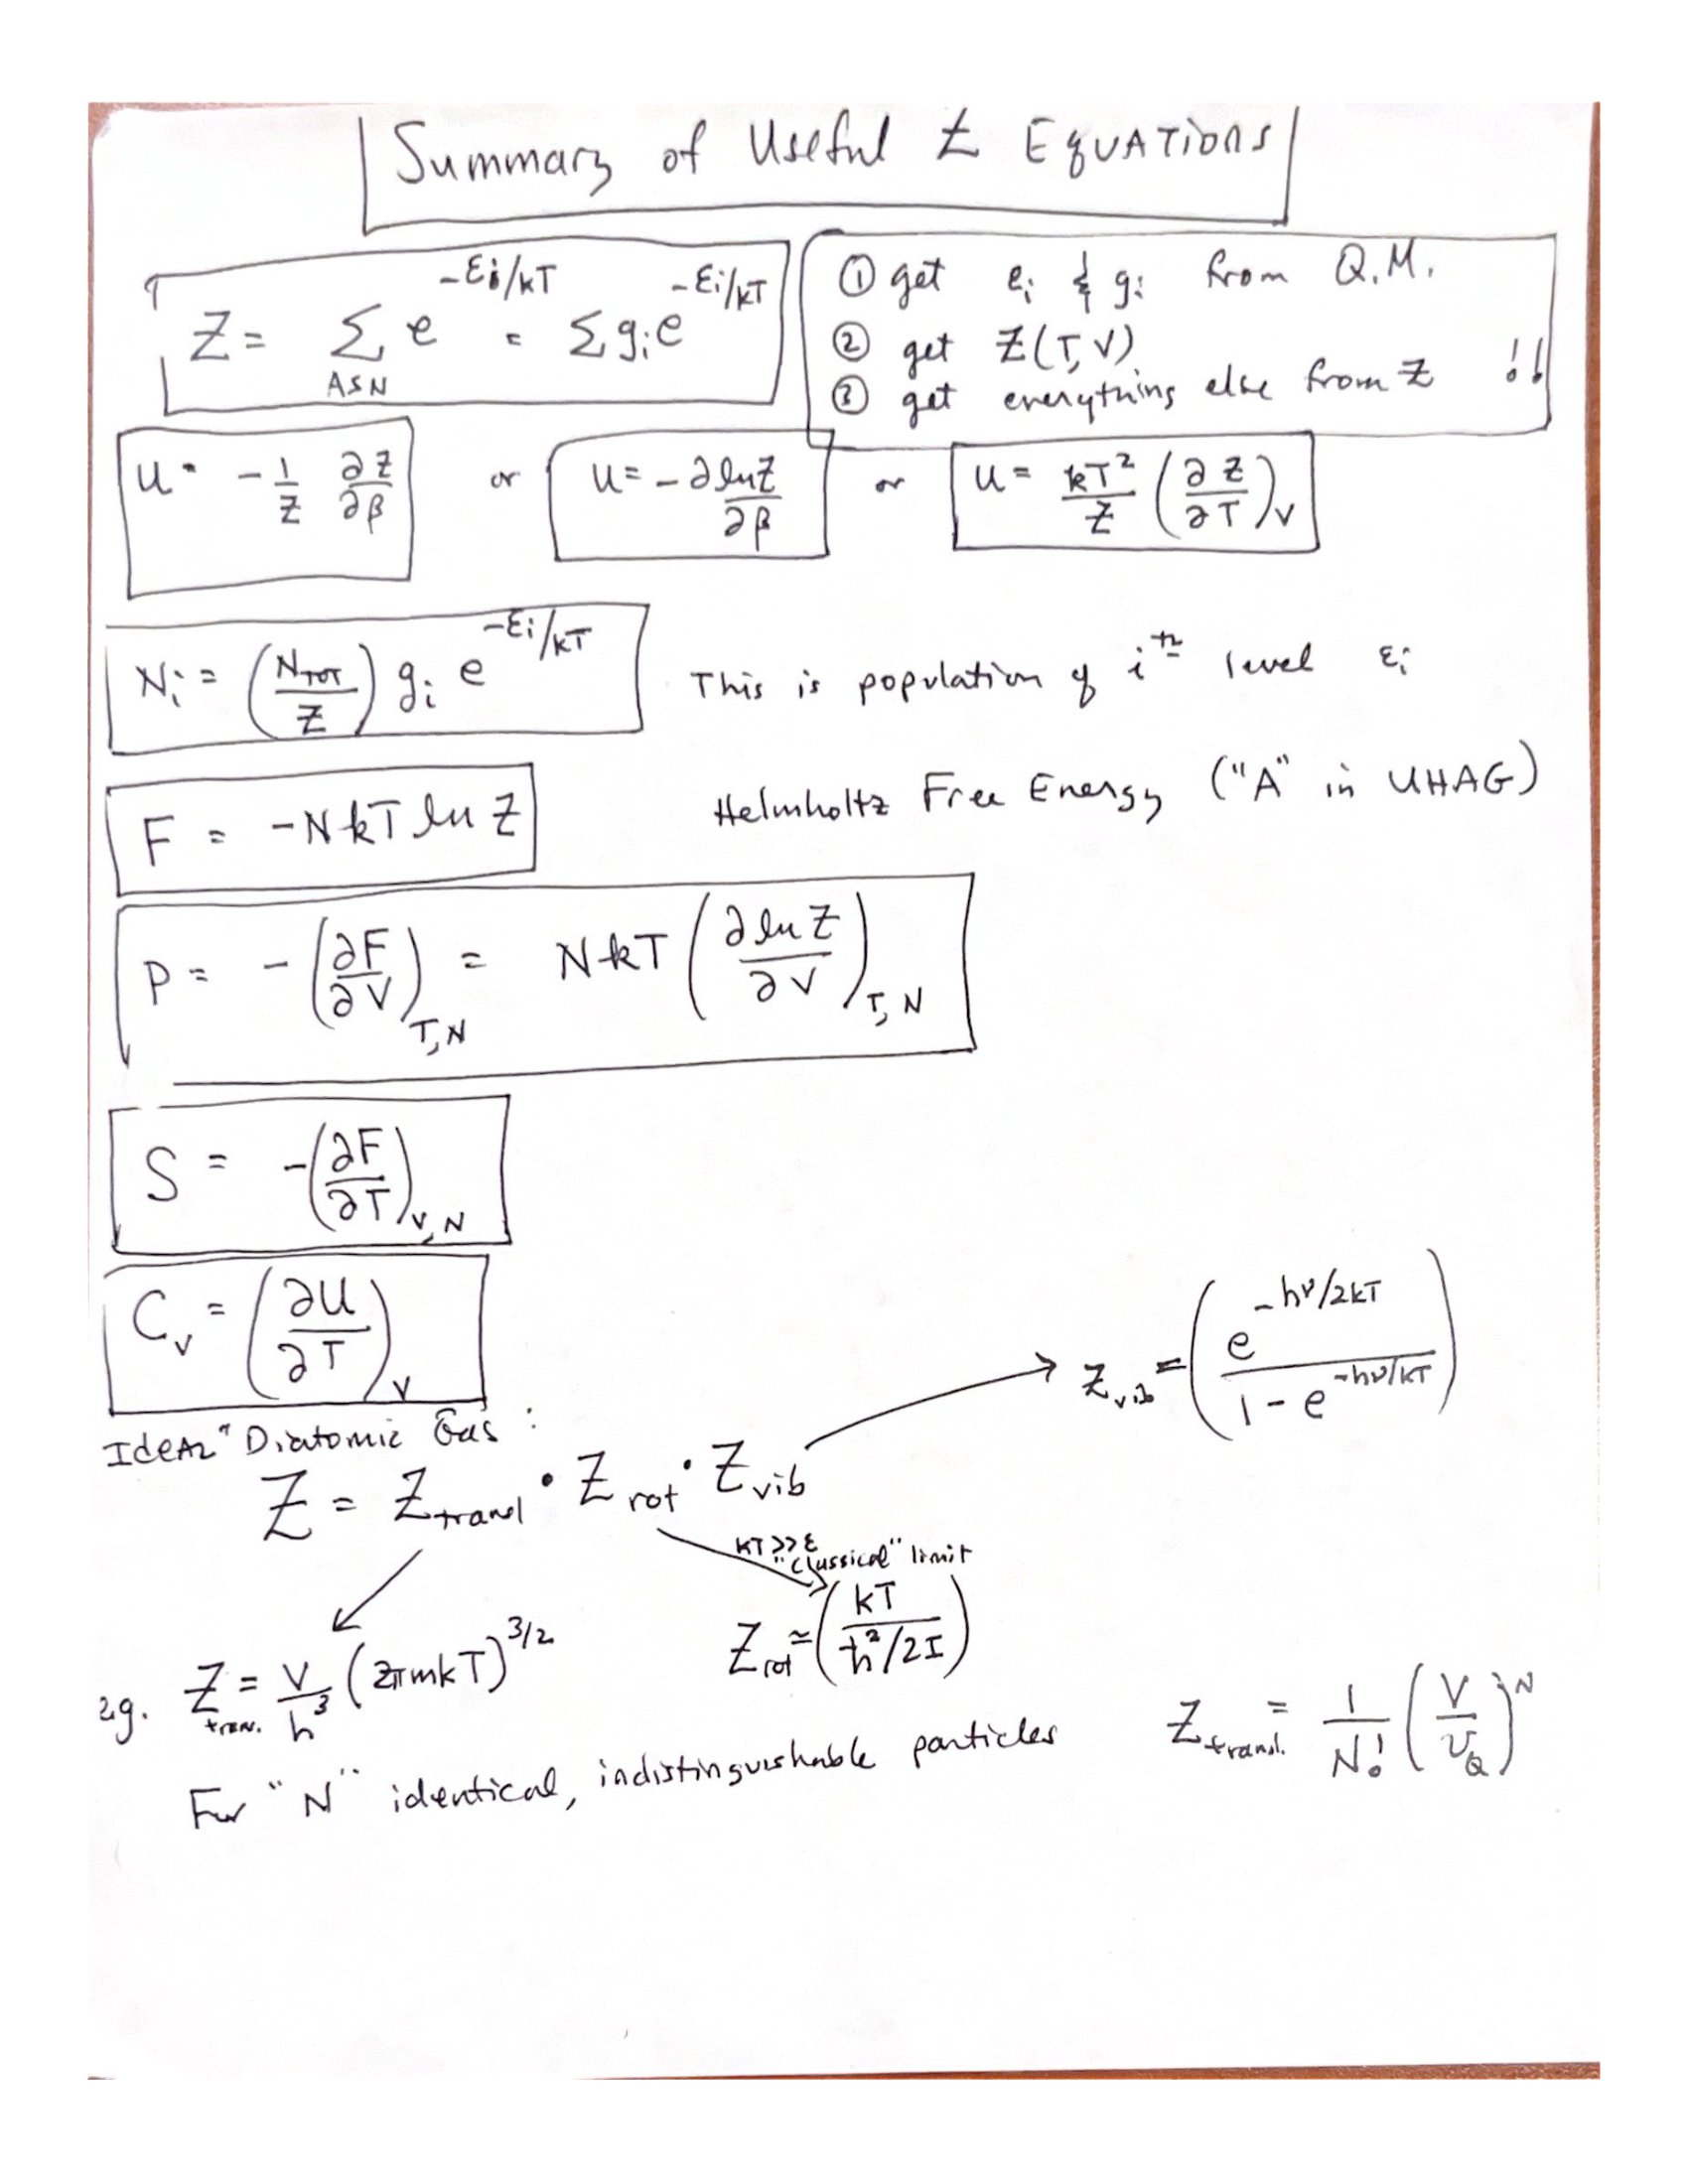 Summary of Useful Z EQUATIONS
Z = Σ e^{-εi/kT} = Σ gi e^{-εi/kT}
ASN
① get εi & gi from Q.M.
② get Z(T,V)
③ get everything else from Z !!
U = -1/Z ∂Z/∂β or U = -∂lnZ/∂β or U = kT²/Z (∂Z/∂T)_V
Ni = (N_TOT/Z) gi e^{-εi/kT} This is population of i^th level εi
F = -NkT ln Z Helmholtz Free Energy ("A" in UHAG)
P = -(∂F/∂V)_{T,N} = NkT (∂ln Z/∂V)_{T,N}
S = -(∂F/∂T)_{V,N}
C_v = (∂U/∂T)_V
Z_vib = (e^{-hν/2kT}/1 - e^{-hν/kT})
IdeAL" Diatomic Gas:
Z = Z_transl · Z_rot · Z_vib
kT>>ε
"classical" limit
Z_rot ≃ (kT/ħ²/2I)
eg. Z_tran. = V/h³ (2πmkT)^{3/2}
For "N" identical, indistinguishable particles Z_transl. = 1/N! (V/v_Q)^N